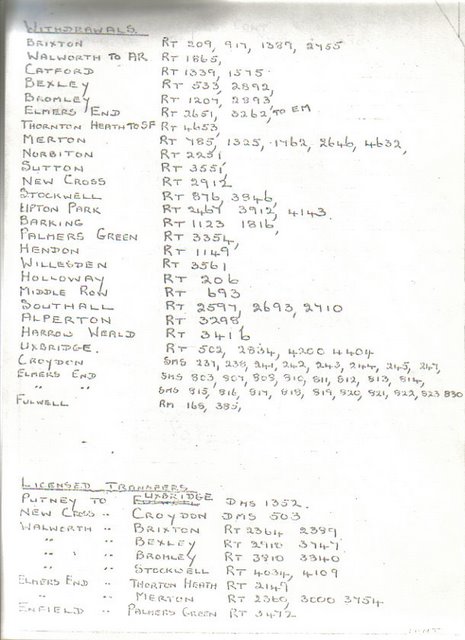 WITHDRAWALS
BRIXTON RT 209, 917, 1389, 2755
WALWORTH TO AR RT 1865,
CATFORD RT 1339, 1575
BEXLEY RT 533, 2892,
BROMLEY RT 1207, 2893
ELMERS END RT 2651, 3262, TO EM
THORNTON HEATH TO SF RT 4653
MERTON RT 785, 1325, 1762, 2646, 4632,
NORBITON RT 2251
SUTTON RT 3551
NEW CROSS RT 2912
STOCKWELL RT 876, 3846,
UPTON PARK RT 2467 3912, 4143
BARKING RT 1123 1816,
PALMERS GREEN RT 3354,
HENDON RT 1149
WILLESDEN RT 3561
HOLLOWAY RT 206
MIDDLE ROW RT 693
SOUTHALL RT 2597, 2693, 2710
ALPERTON RT 3298
HARROW WEALD RT 3416
UXBRIDGE. RT 502, 2834, 4200 4404
CROYDON SMS 237, 238, 241, 242, 243, 244, 245, 247,
ELMERS END SMS 803, 807, 808, 810, 811, 812, 813, 814,
" " SMS 815, 816, 817, 818, 819, 820, 821, 822, 823 830
FULWELL RM 168, 385,
LICENSED TRANSFERS
PUTNEY TO UXBRIDGE DMS 1352.
NEW CROSS " CROYDON DMS 503
WALWORTH " BRIXTON RT 2364 2389
" " BEXLEY RT 2918 3747
" " BROMLEY RT 3810 3340
" " STOCKWELL RT 4034, 4109
ELMERS END " THORTON HEATH RT 2149
" " MERTON RT 2360, 3000 3754
ENFIELD " PALMERS GREEN RT 3472